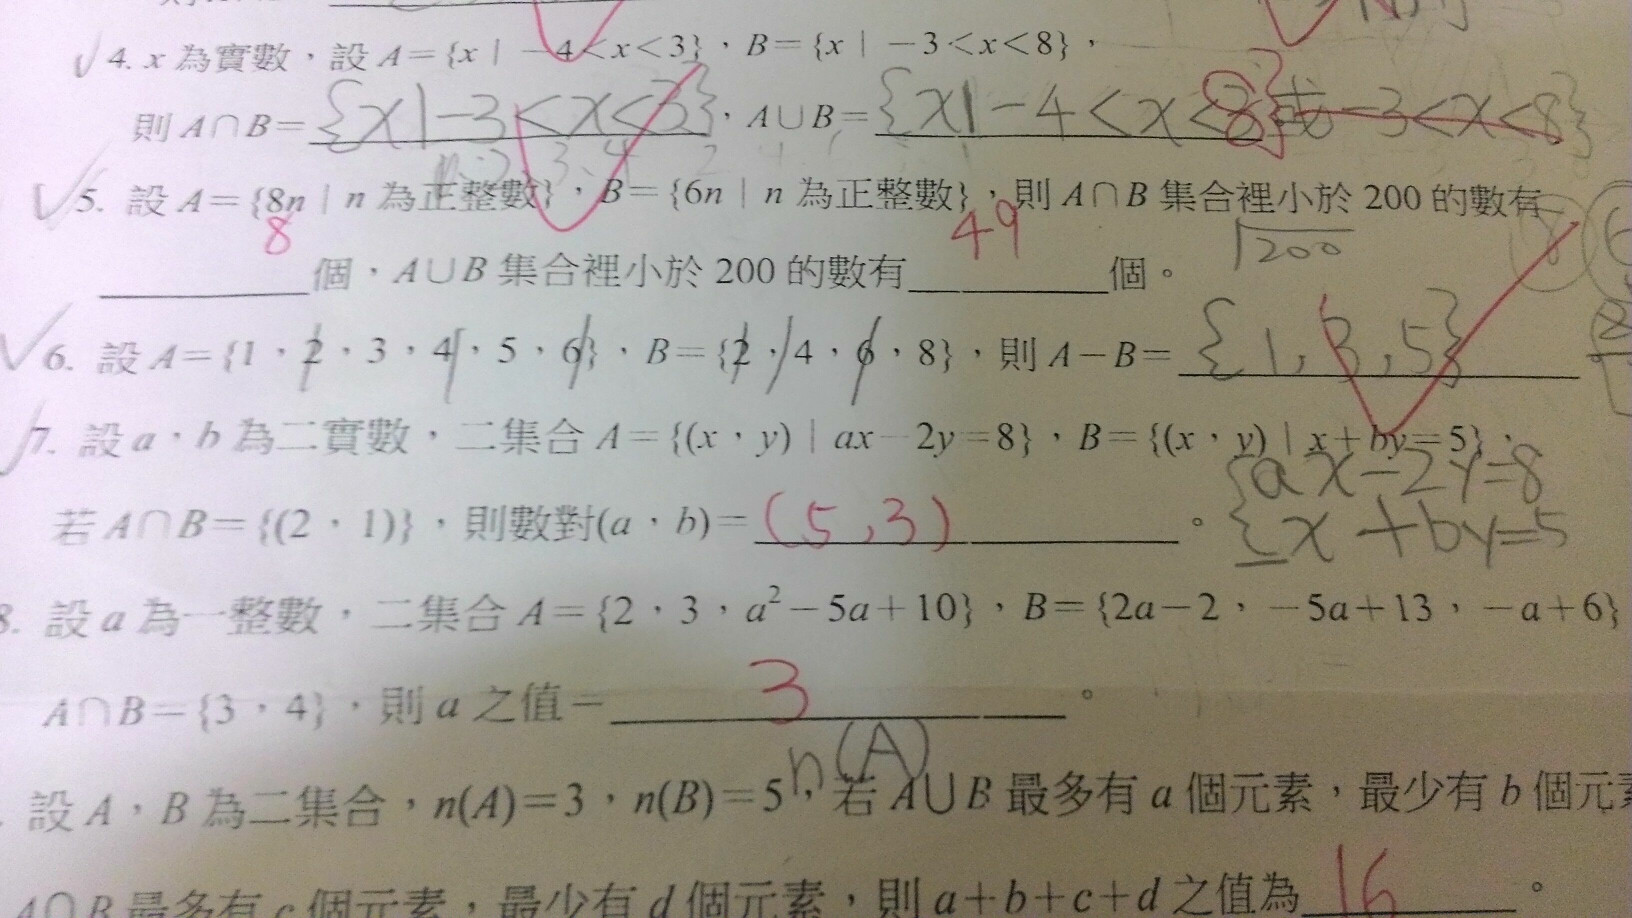 4. x 為實數，設 A={x | -4<x<3}，B={x | -3<x<8}，
則 A∩B= {x|-3<x<3}，A∪B= {x|-4<x<8} 或 -3<x<8}
5. 設 A={8n | n 為正整數}，B={6n | n 為正整數}，則 A∩B 集合裡小於 200 的數有
8 個，A∪B 集合裡小於 200 的數有 49 個。
200
6. 設 A={1，2，3，4，5，6}，B={2，4，6，8}，則 A-B= {1,3,5}
7. 設 a，b 為二實數，二集合 A={(x，y) | ax-2y=8}，B={(x，y) | x+by=5}，
ax-2y=8
若 A∩B={(2，1)}，則數對(a，b)= (5,3)。
x+by=5
8. 設 a 為一整數，二集合 A={2，3，a²-5a+10}，B={2a-2，-5a+13，-a+6}
A∩B={3，4}，則 a 之值= 3。
n(A)
設 A，B 為二集合，n(A)=3，n(B)=5，若 A∪B 最多有 a 個元素，最少有 b 個元素
A∩B 最多有 c 個元素，最少有 d 個元素，則 a+b+c+d 之值為 16。